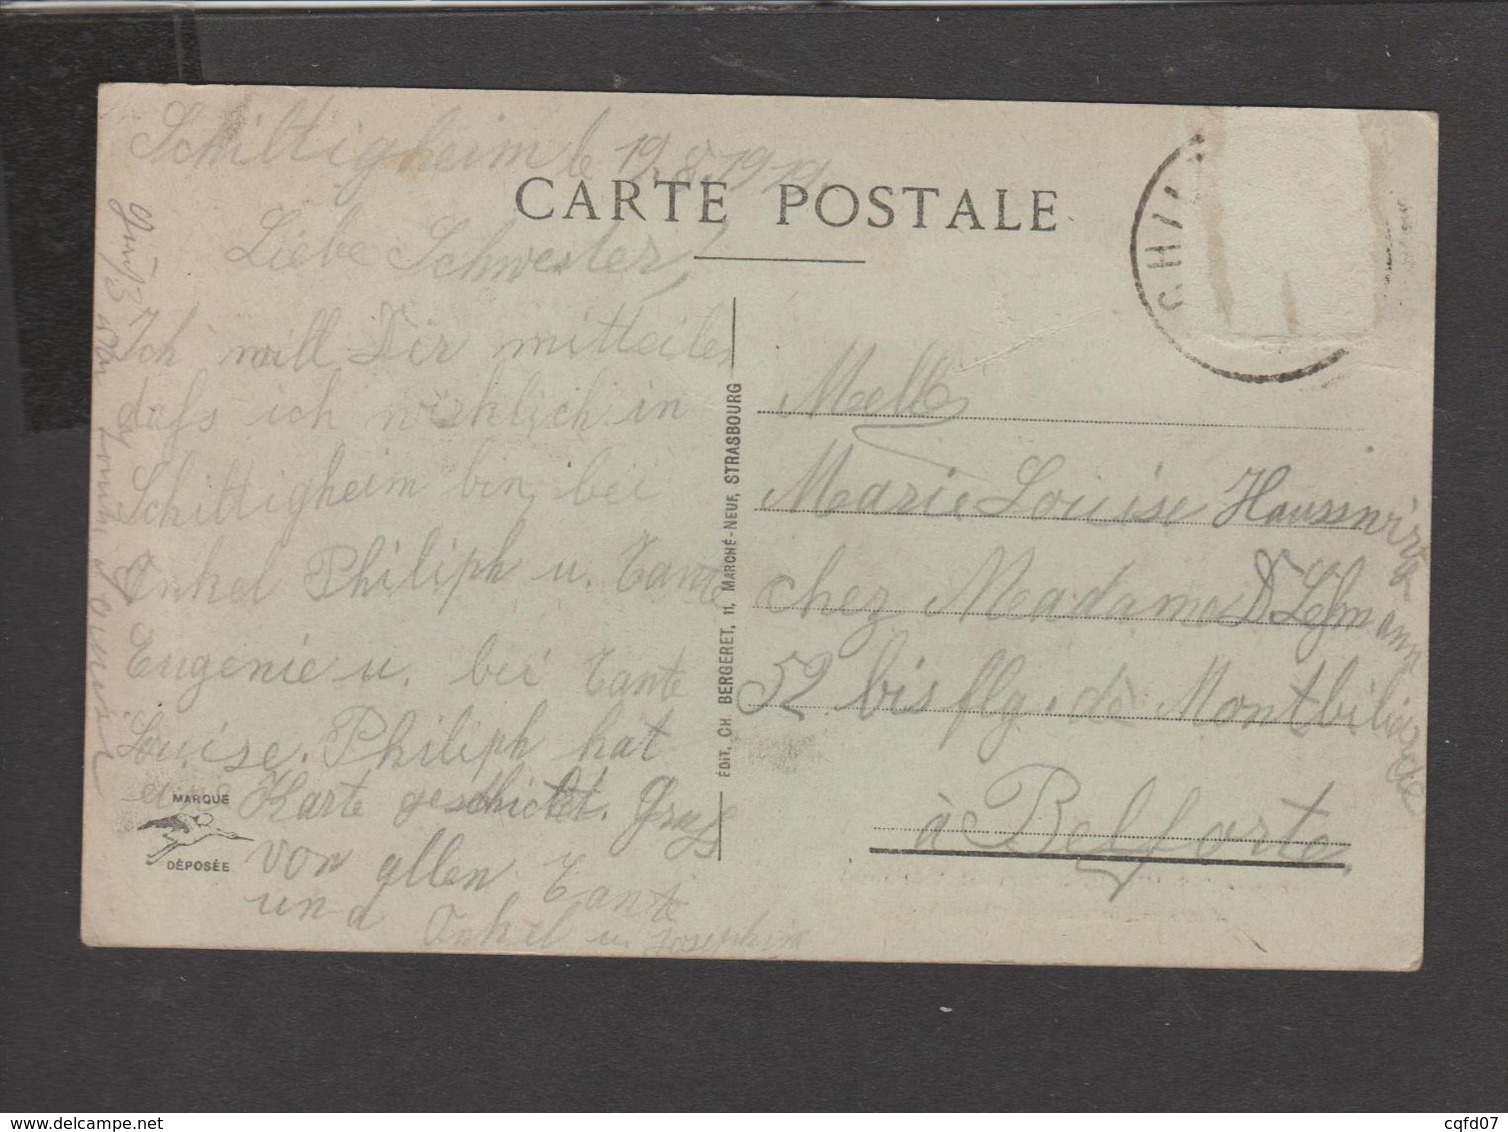 Schiltigheim le 19.8.1919
CARTE POSTALE
Liebe Schwester!
Ich will Dir mitteilen
daß ich wirklich in
Schiltigheim bin, bei
Onkel Philiph u. Tante
Eugenie u. bei Tante
Louise. Philiph hat
eine Karte geschicket. Gruß
von allen Tante
und Onkel u Josephine
MARQUE
DÉPOSÉE
ÉDIT. CH. BERGERET, 11, MARCHÉ-NEUF, STRASBOURG
SCHIL
Melle
Marie Louise Hausswirth
chez Madame D Lehmann
52 bis fbg. de Montbiliarde
à Belforte
cqfd07